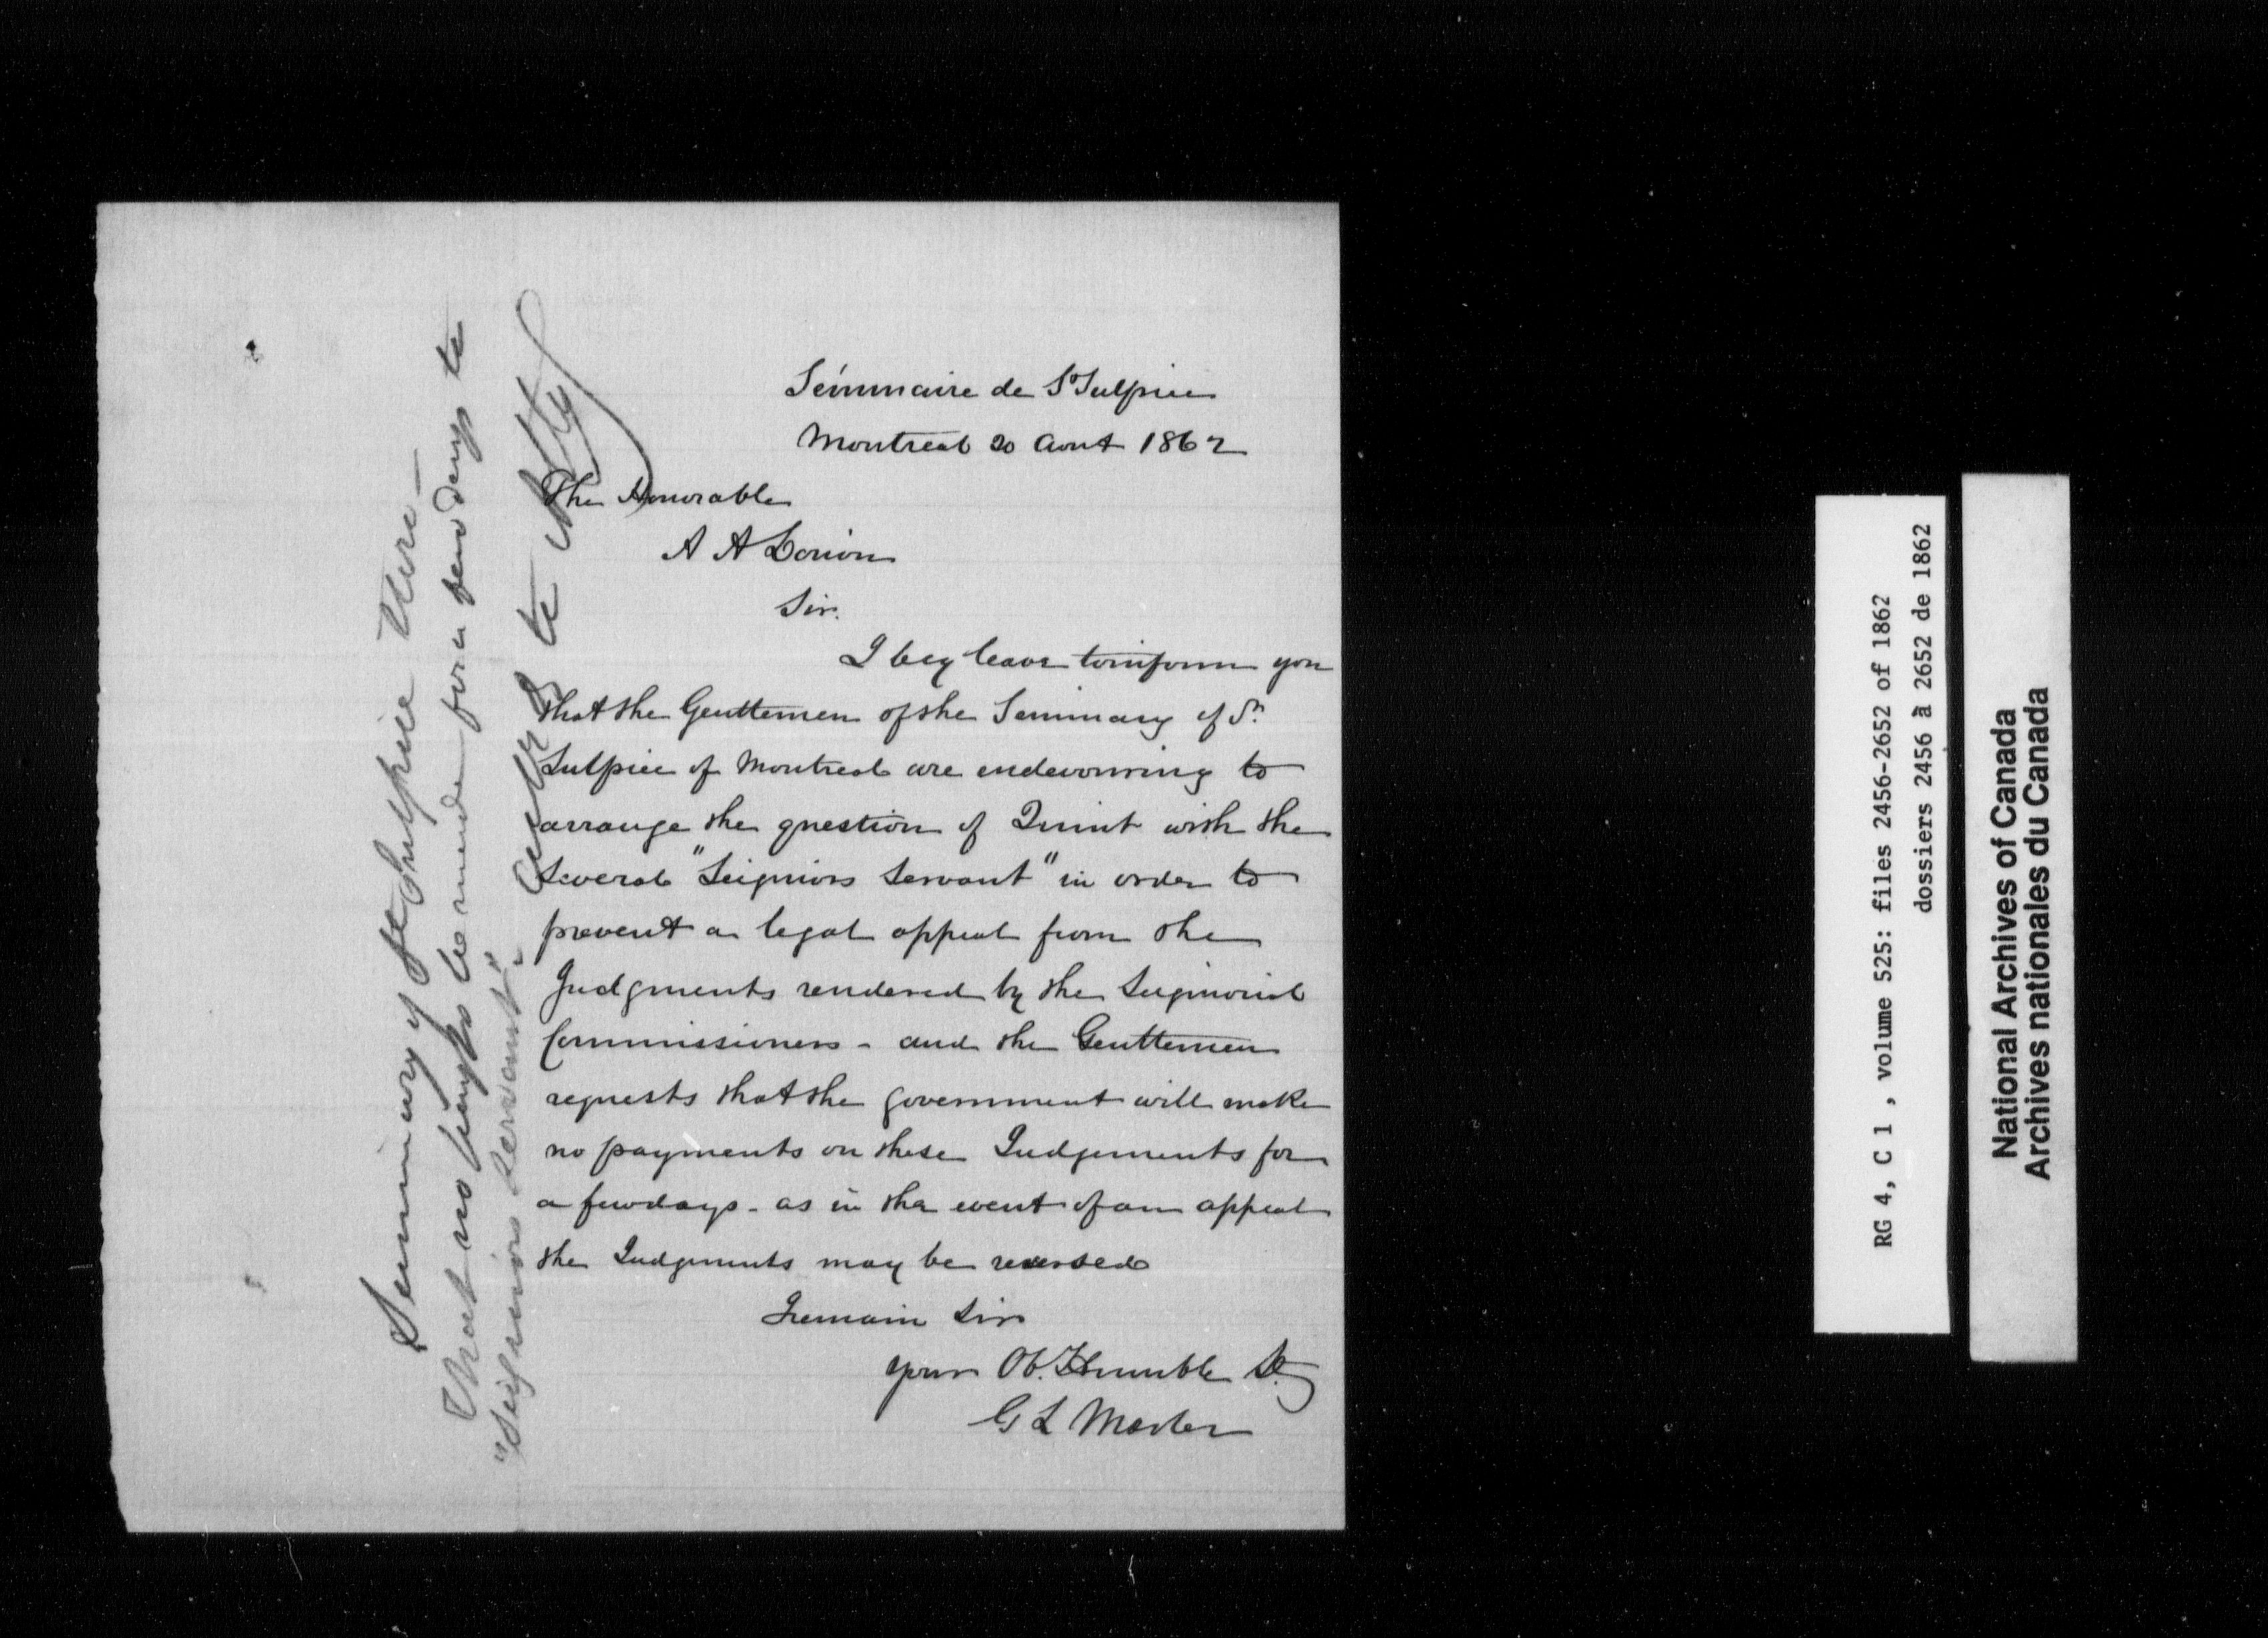 Séminaire de St Sulpice
Montreal 20 Aout 1862
The Honorable
A A Dorion
Sir.
I beg leave to inform you
that the Gentlemen of the Seminary of St
Sulpice of Montreal are endevouring to
arrange the question of Quint with the
several "Seigniors Servant" in order to
prevent a legal appeal from the
Judgments rendered by the Seigniorial
Commissioners - and the Gentlemen
requests that the government will make
no payments on these Judgements for
a few days - as in the event of an appeal
the Judgments may be reversed
I remain Sir
your Ob. Humble St.
G L Marler
Seminary of St Sulpice
that no
be made for a few days to
"Seigniors Servant"
RG 4, C 1 , volume 525: files 2456-2652 of 1862
dossiers 2456 à 2652 de 1862
National Archives of Canada
Archives nationales du Canada